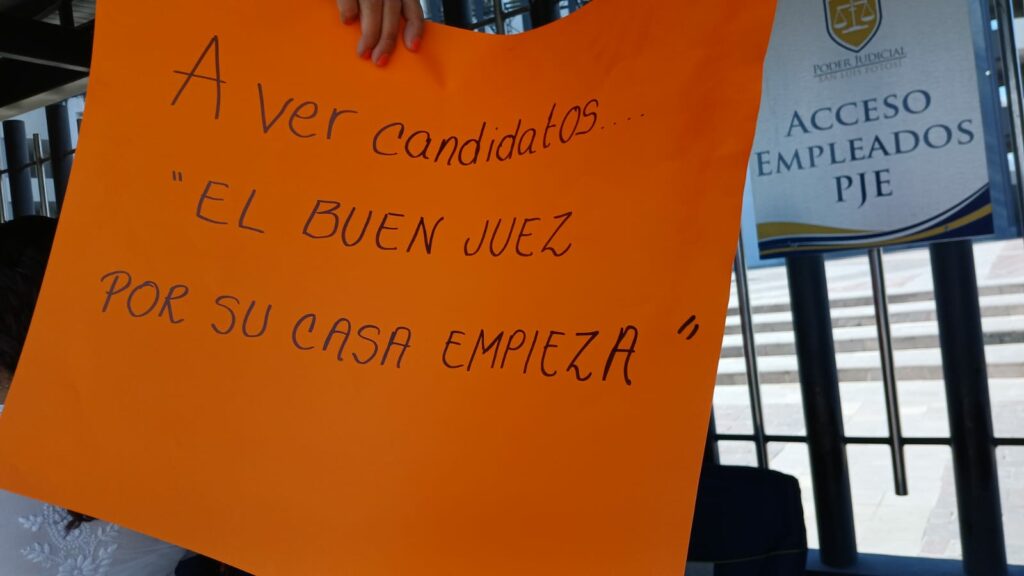 A ver candidatos....
"EL BUEN JUEZ
POR SU CASA EMPIEZA"
PODER JUDICIAL
SAN LUIS POTOSÍ
ACCESO
EMPLEADOS
PJE